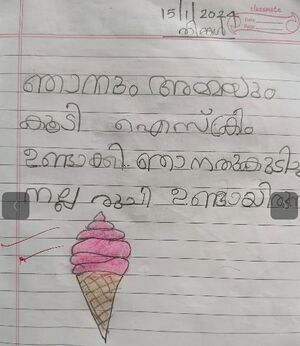 15/1/2024
തിങ്കൾ
classmate
Date
Page
ഞാനും അമ്മയും
കൂടി ഐസ്ക്രീം
ഉണ്ടാക്കി. ഞാനതുകുടിച്ചു
നല്ല രുചി ഉണ്ടായിരുന്നു